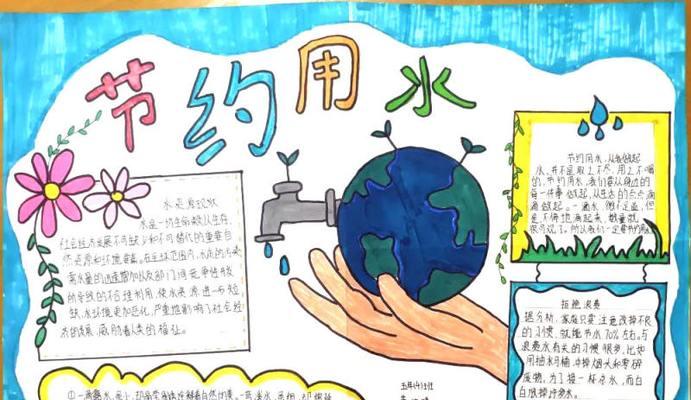 节约用水
水资源现状
水是一切生命赖以生存,
社会经济发展不可缺少和不可替代的重要自
然资源和环境要素。在全球范围内,水的污染
需水量的迅速增加以及部门间竞争性开发
所导致的不合理利用,使水资源进一步短
缺,水环境更加恶化,严重地影响了社会经
济的发展,威胁着人类的福祉。
节约用水,从我做起
水,并不是取之不尽,用之不竭
的。节约用水,我们要从身边的
每一件事做起,从生活的点点滴
滴做起。一滴水,微不足道,但
是不停地滴起来,数量就
很可观了。所以我们一定要节约用
拒绝浪费
据分析,家庭只要注意改掉不良
的习惯,就能节水70%左右。与
浪费水有关的习惯很多,比如
用抽水马桶冲掉烟头和零碎
废物。为了接一杯凉水,而白
白放掉许多水。
五年(4)班